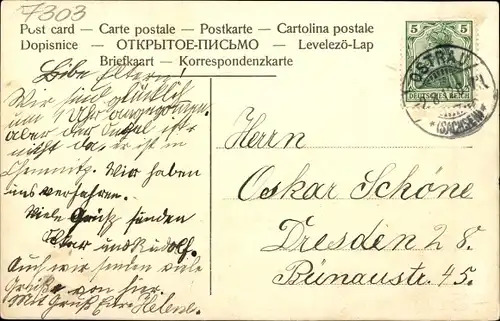 7303
Post card — Carte postale — Postkarte — Cartolina postale
Dopisnice — ОТКРЫТОЕ-ПИСЬМО — Levelezö-Lap
Briefkaart — Korrespondenzkarte
5 5
DEUTSCHES REICH
OSTRAU
*(SACHSEN)*
Libe Eltern!
Wir sind glücklich
um 1 Uhr angekommen.
aber der Onkel ist
nicht da, er ist in
Chemnitz. Wir haben
uns verfahren.
Viele Grüß senden
und Rudolf.
Auch wir senden viele
Grüße von hier.
Mit Gruß Eure Helene.
Herrn
Oskar Schöne
Dresden 28.
Bünaustr. 45.